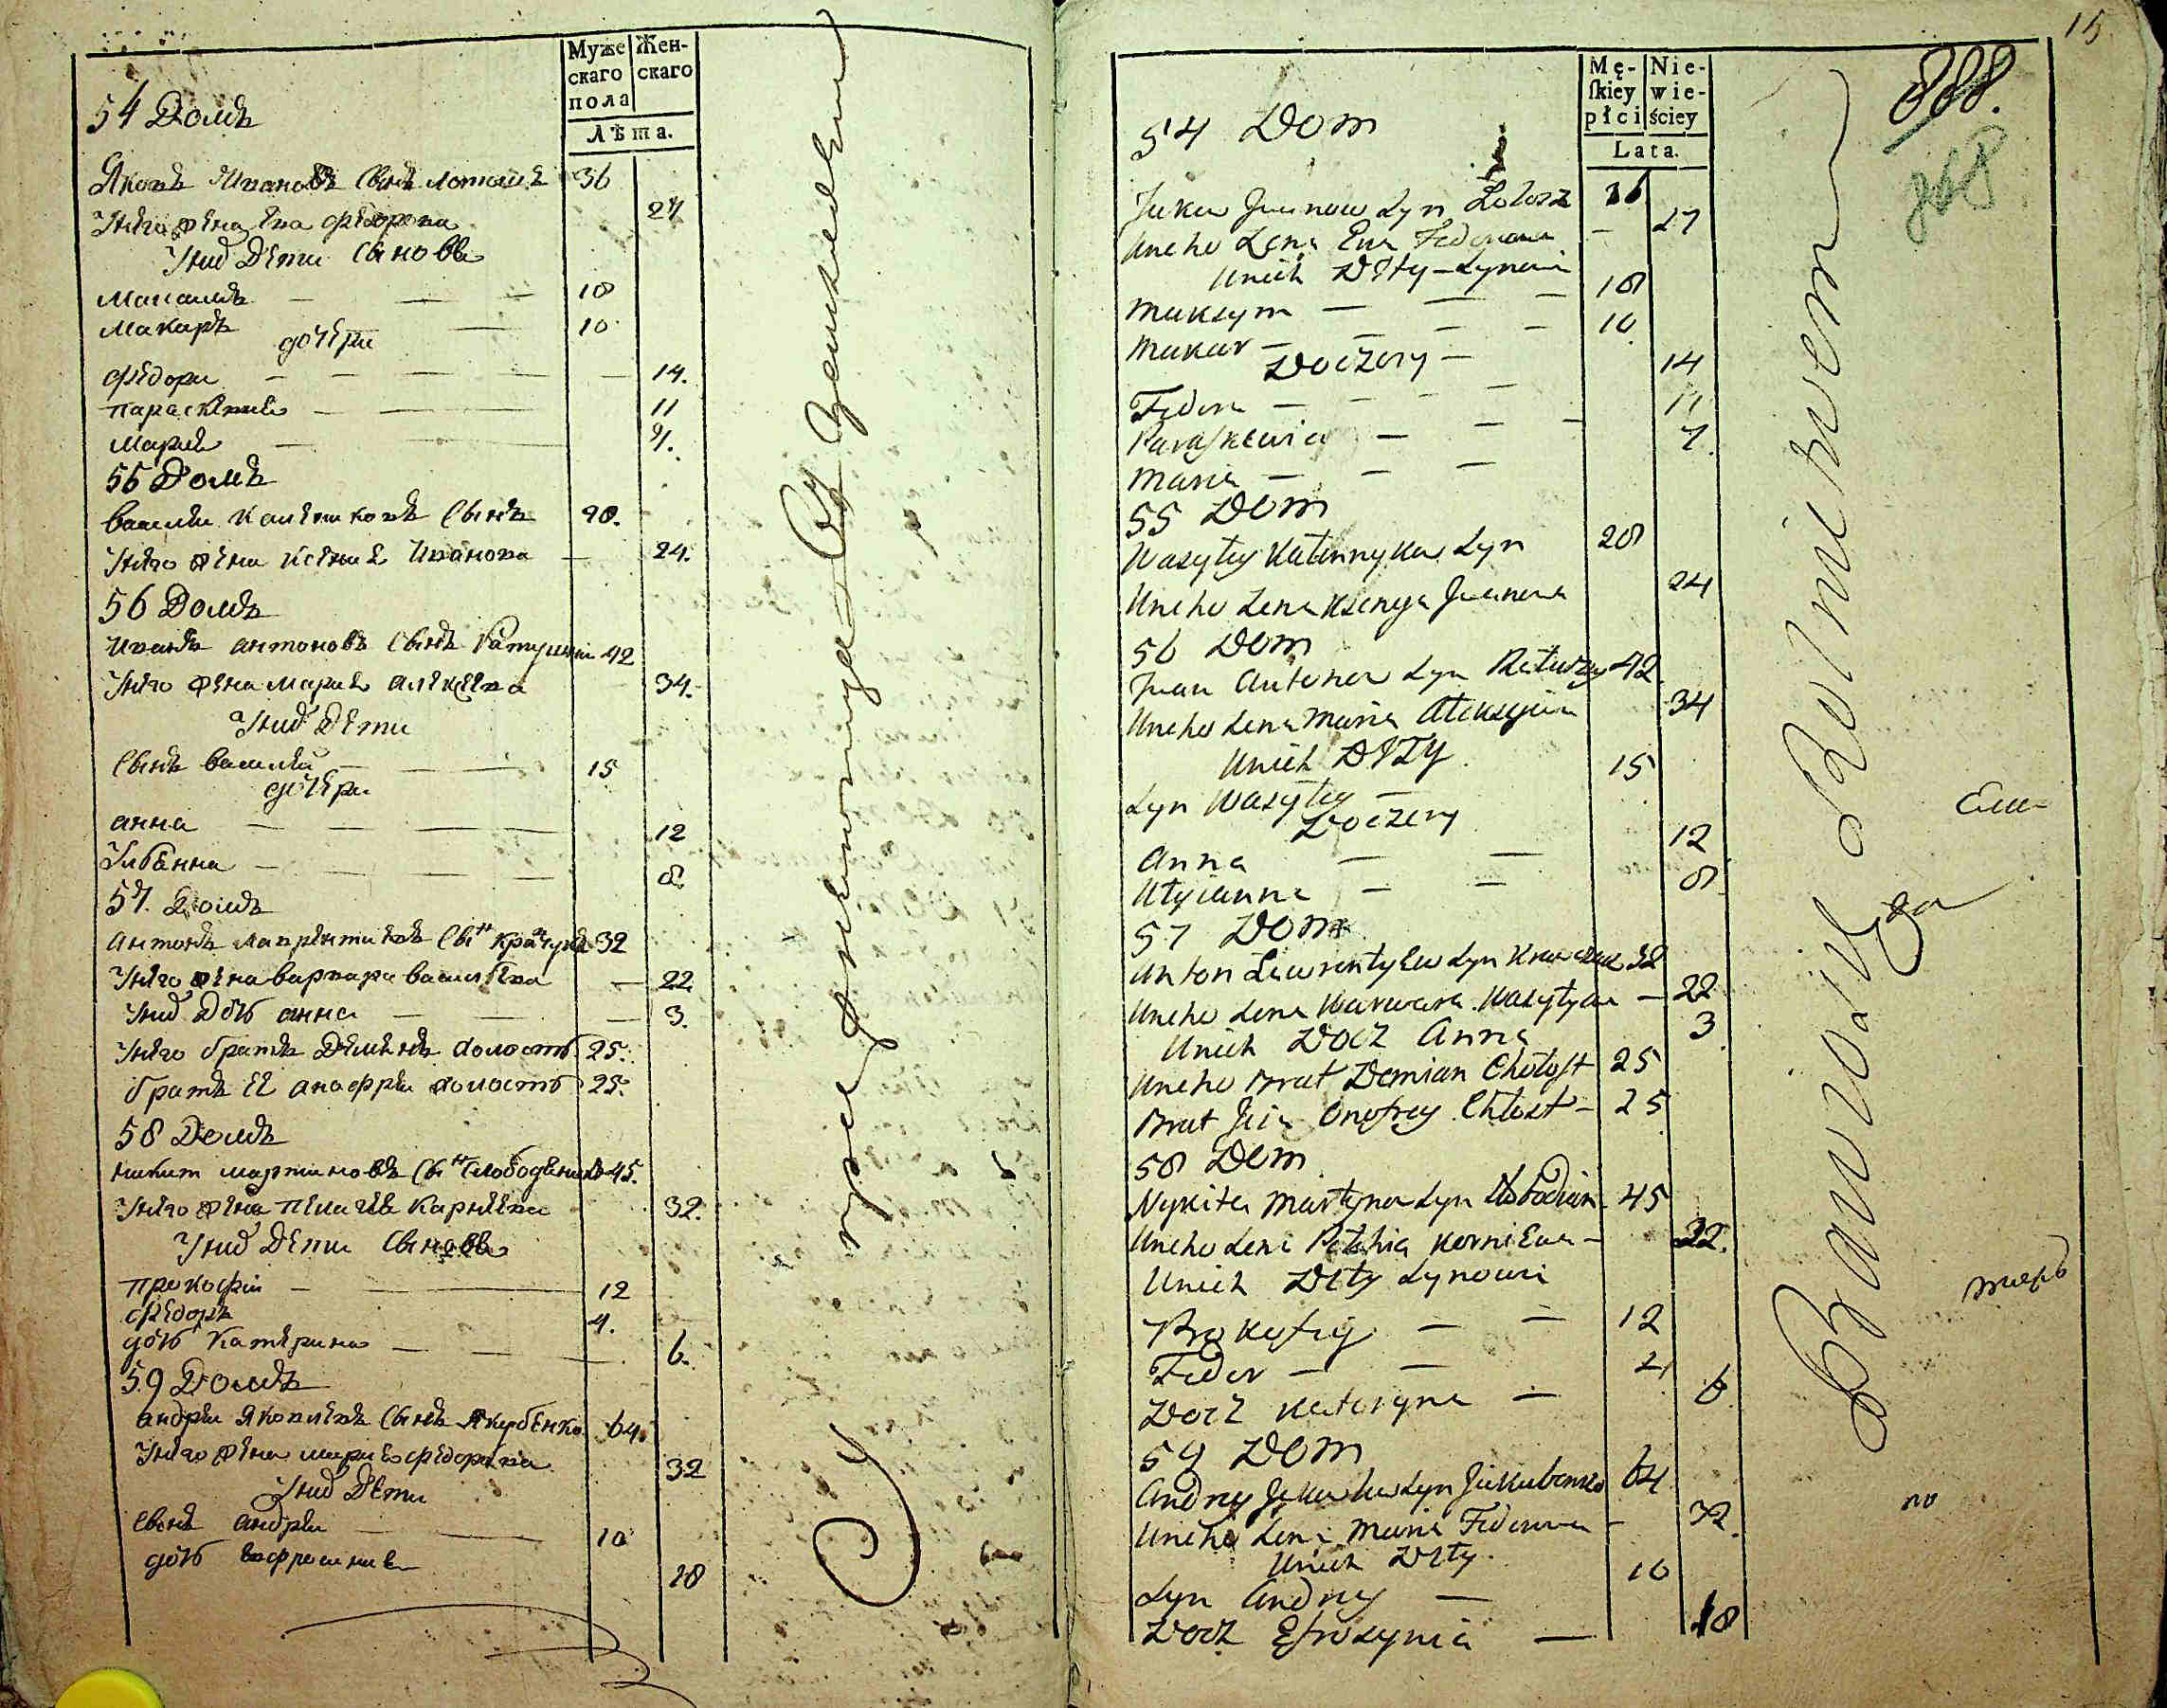 Муже
скаго
пола
Жен-
скаго
Лѣта.
54 Домъ
Яковъ Ивановъ Сынъ Лотошъ 36
Унѣго жена Ева Федорова 27
Уних Дети Сыновя
Максимъ — — — 18
Макаръ — 10
дочери
Федора — — — — 14.
Параскевия — — — 11
Мария — 7.
55 Домъ
Василий Калениковъ Сынъ 28.
Унѣго жена Ксения Иванова — 24.
56 Домъ
Иванъ Антоновъ Сынъ 42
Унѣго жена Мария Алексеева 34.
Уних Дети
Сынъ Василий — — — 15
дочери
Анна — — — 12
Улбянна — — — — 8.
57 Домъ
Антонъ Лаврентиевъ Сынъ Кравчукъ 32
Унѣго жена Варвара Василева — 22
Уних Дочь Анна — — — 3.
Унѣго братъ Демянъ холостъ 25.
братъ ЕЕ Анофрий холостъ 25.
58 Домъ
Никита Мартиновъ Сынъ 45.
Унѣго жена Пелагия Карнеева 32.
Уних Дети Сыновя
Прокофий — — 12
Федоръ 4.
дочь Катерина — — — 6.
59 Домъ
Андрей Яковлевъ Сынъ Якубенко 64.
Унѣго жена Мария Федорова 32
Уних Дети
Сынъ Андрей — — 10
дочь Евфросиния 18
15
888.
868
Mę-
ſkiey
płci
Nie-
wie-
ściey
Lata.
54 Dom
Jakow Jwanow Syn Lotosz 36
Uneho Żena Ewa Fedorowa — 27
Unich Dity — Synowi
Maksym — — — 18
Makar — — — — 10
Doczery —
Fedora — — — — 14
Paraſkewia — — — 11
Maria — — — 7.
55 Dom
Wasyley Kalennykow Syn 28
Uneho Żena Ksenya Jwanowa 24
56 Dom
Jwan Antonow Syn 42.
Uneho Żena Maria Alekseiewa 34
Unich Dity
Syn Wasyley — 15
Doczery
Anna — — 12
Ulyianna — — 8
57 Dom
Anton Lawrentyew Syn Krawczuk 32
Uneho Żena Warwara Wasylewa — 22
Unich Docz Anna 3
Uneho Brat Demian Chołoſt 25
Brat Jeia Onofrey Chłost — 25
58 Dom
Nykita Martynow Syn 45
Uneho Żena Pełahia Korniewa — 32.
Unich Dity Synowi
Prokofiy — — 12
Fedor — — 4
Docz Kateryna — 6
59 Dom
Andrey Jakowlew Syn Jakubenko 64
Uneho Żena Maria Fedorowa — 32.
Unich Dity.
Syn Andrey — 10
Docz Efrosynia — 18
по